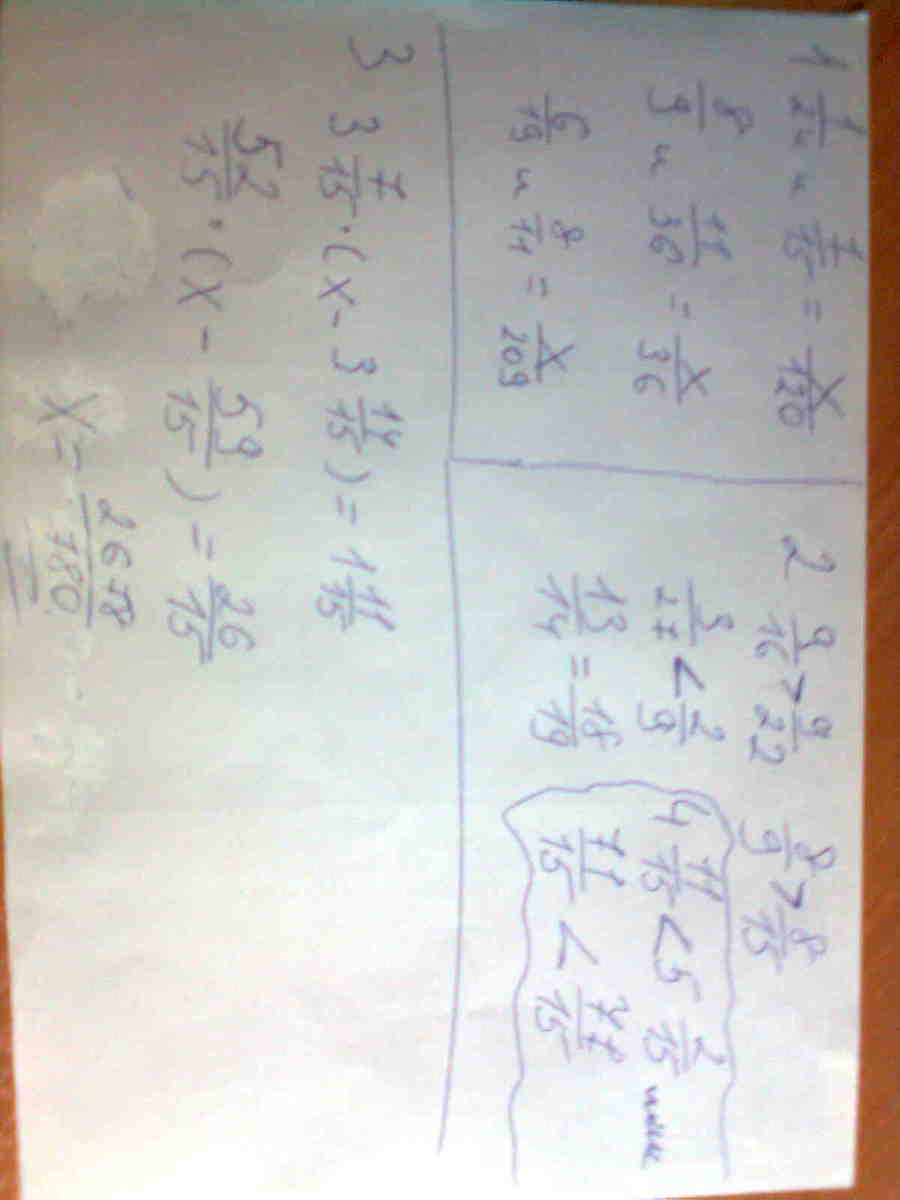 1 1/24 и 7/15 = X/120
8/9 и 11/36 = X/36
6/19 и 8/11 = X/209
2 9/16 > 9/22 8/9 > 8/15
3/27 < 2/9
13/14 = 18/19
4 11/15 < 5 2/15 или
71/15 < 77/15
3 3 7/15 · (X - 3 14/15) = 1 11/15
52/15 · (X - 59/15) = 26/15
X = 2658/780